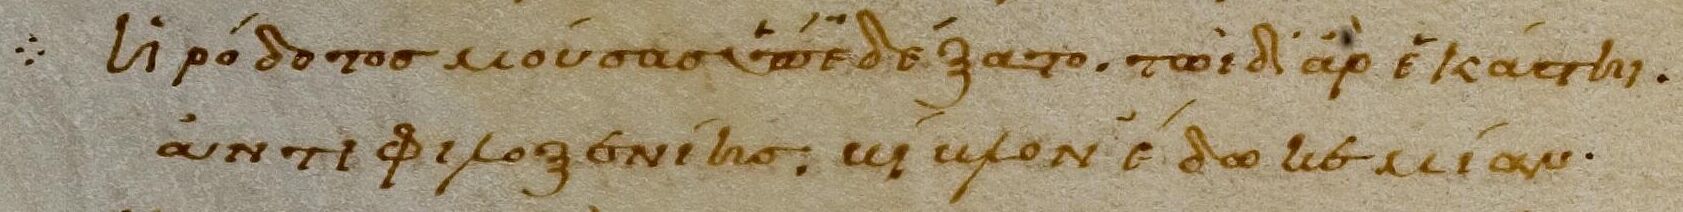 Ἡρόδοτος μούσας ὑπεδέξατο. τῶι δ' ἄρ ἑκάστη.
ἀντὶ φιλοξενίης. βίβλον ἔδωκε μίαν.